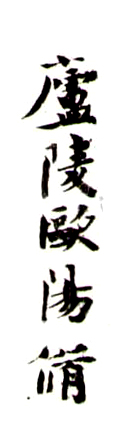 廬陵歐陽脩